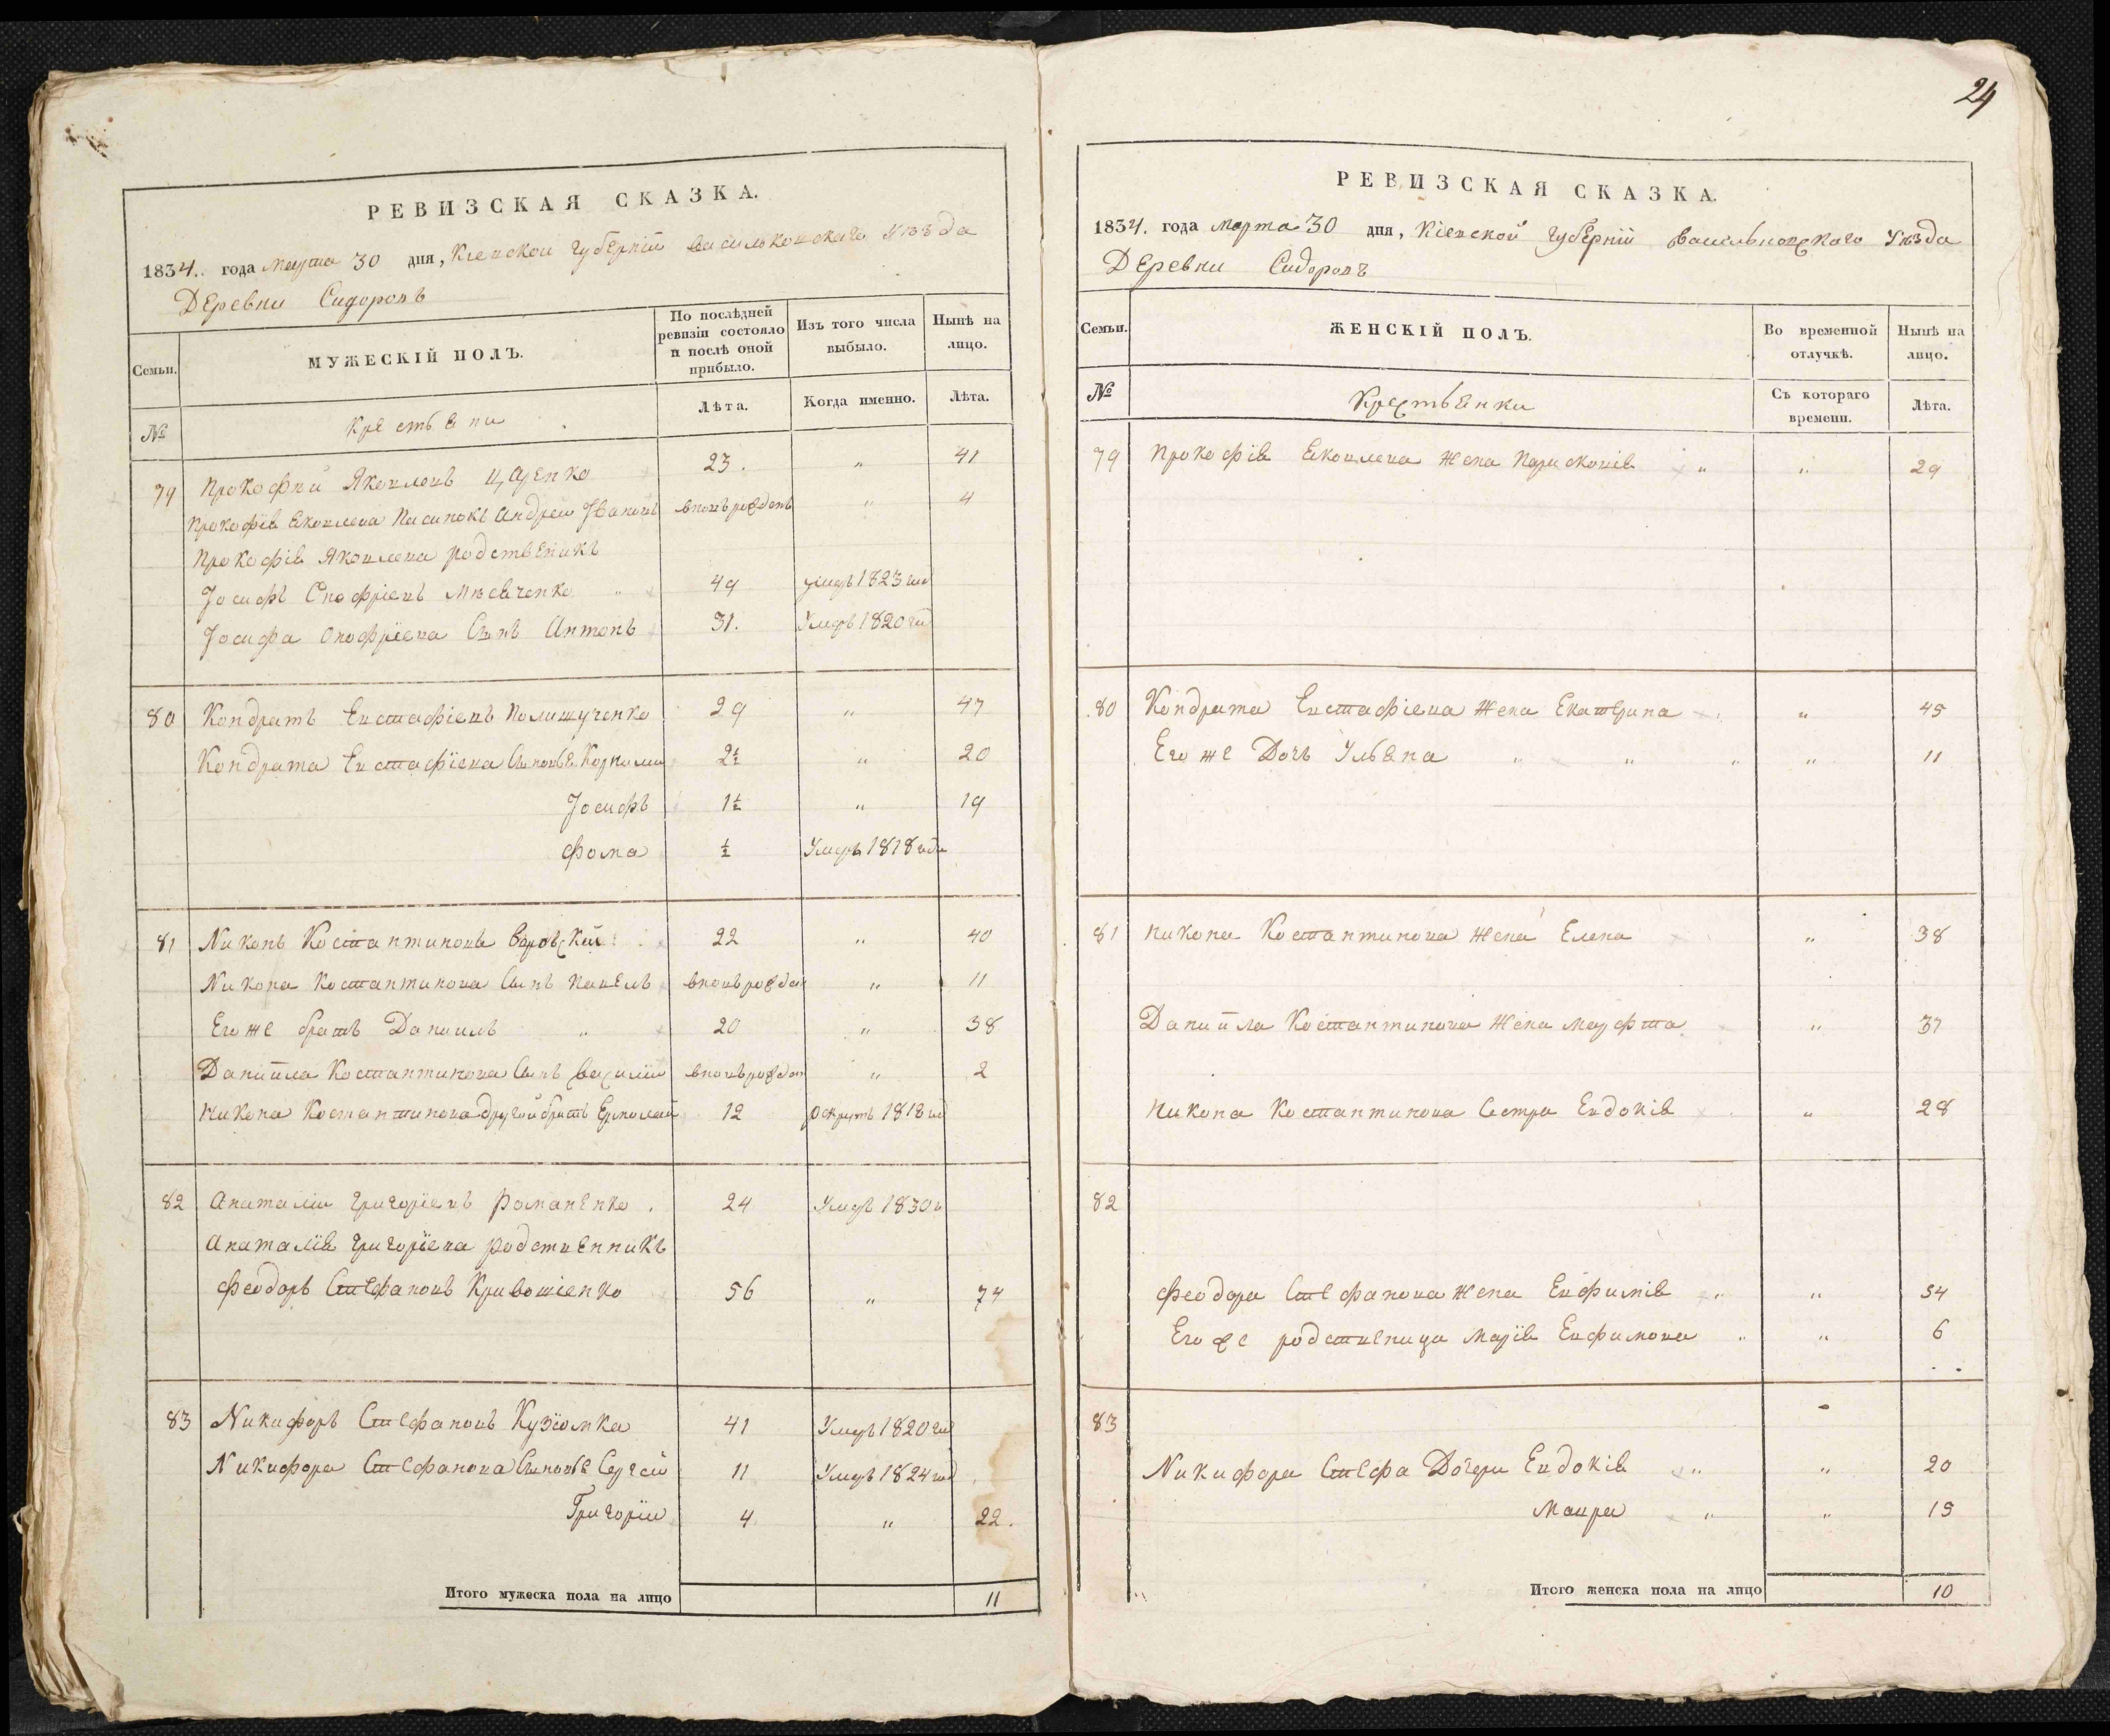 24
РЕВИЗСКАЯ СКАЗКА.
1834. года Марта 30 дня, Кіевской губерніи Васильковскаго Уѣзда
Деревни Сидоровъ
Семьи.
МУЖЕСКІЙ ПОЛЪ.
По послѣдней ревизіи состояло и послѣ оной прибыло.
Изъ того числа выбыло.
Нынѣ на лицо.
№
Крестьяни
Лѣта.
Когда именно.
Лѣта.
79 Прокофий Яковлевъ 23. " 41
Прокофія Яковлева Пасинокъ Андрей Ивановъ вновь рожденъ " 4
Прокофія Яковлева родственикъ
Іосифъ Онофріевъ " 49 умеръ 1823 год
Іосифа Онофріева Сынъ Антонъ 31. Умеръ 1820 год
80 Кондратъ Евстафіевъ Полищученко 29 " 47
Кондрата Евстафіева Сыновья Корнили 2½ " 20
Іосифъ 1½ " 19
Фома ½ Умеръ 1818 года
81 Никонъ Костантиновъ 22 " 40
Никона Костантинова Сынъ Павелъ вновь рожден " 11
Его же братъ Даниилъ " 20 " 38
Даниила Костантинова Сынъ Василій вновь рожден " 2
Никона Костантинова другой братъ Ермолай 12 рекрутъ 1818 год
82 Анаталій Григоріевъ Романенко. 24 Умеръ 1830 г
Анаталія Григоріева родственникъ
Феодоръ Стефановъ Кривошіенко 56 " 74
83 Никифоръ Стефановъ Кузіомка 41 Умеръ 1820 год
Никифора Стефанова Сыновья Сергей 11 Умеръ 1824 год
Григорій 4 " 22.
Итого мужеска пола на лицо 11
РЕВИЗСКАЯ СКАЗКА.
1834. года Марта 30 дня, Кіевской губерніи Васильковскаго Уѣзда
Деревни Сидоровъ
Семьи.
ЖЕНСКІЙ ПОЛЪ.
Во временной отлучкѣ.
Нынѣ на лицо.
№
Крестьянки
Съ котораго времени.
Лѣта.
79 Прокофія Яковлева Жена Парасковія " " 29
80 Кондрата Евстафіева Жена Екатерина " 45
Его же Дочь Ульяна " " " " 11
81 Никона Костантинова Жена Елена " 38
Даниила Костантинова Жена Марфта " 37
Никона Костантинова Сестра Евдокія " 28
82
Феодора Стефанова Жена Евфимія " " 54
Его же родственица Марія Евфимова " " 6
83
Никифора Стефа Дочери Евдокія " " 20
Мавра " " 15
Итого женска пола на лицо 10